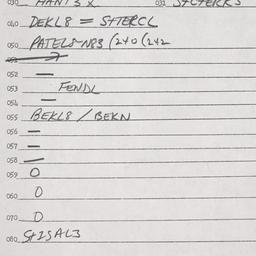 030 HANTS X 031 StCTERKS
040 DEKL8 = StTERCL
050 PATELS-N83 (240 (242
052 —
053 FENDL
054 —
055 BEKL8 / BEKN
056 —
057 —
058 —
059 O
060 O
070 O
080 StISAL3